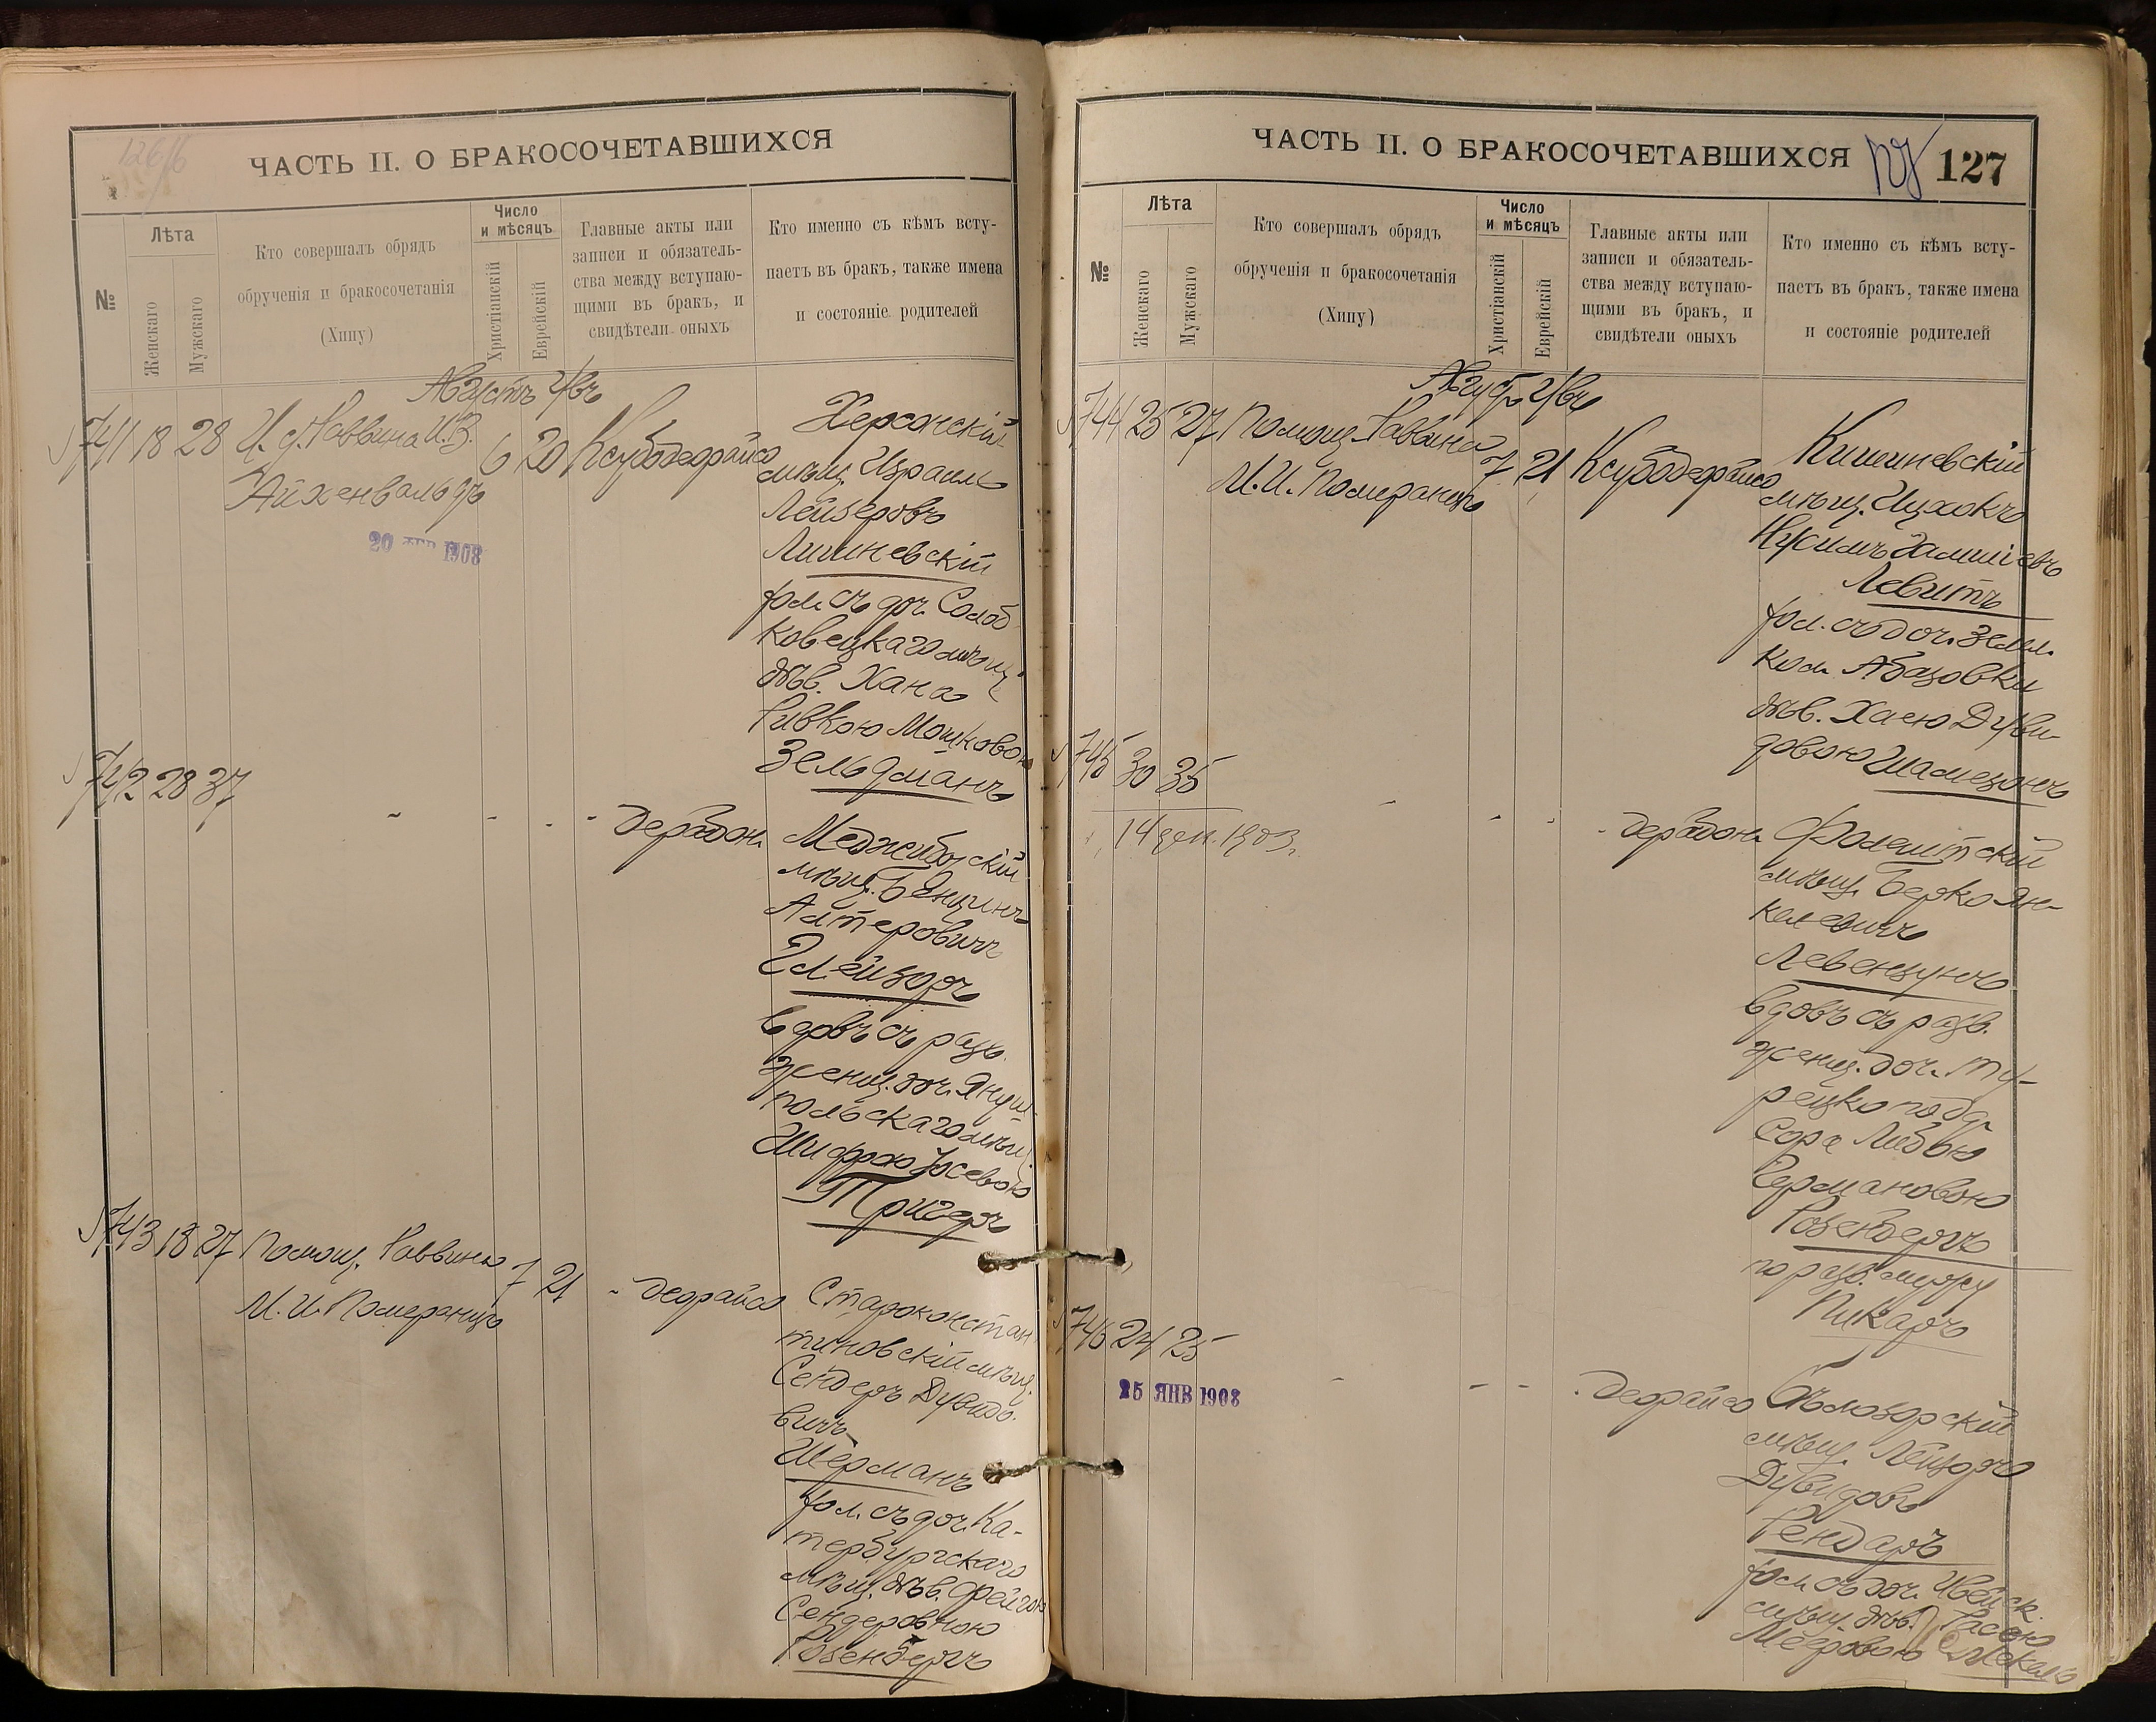 ЧАСТЬ II. О БРАКОСОЧЕТАВШИХСЯ
№
Лѣта
Женскаго
Мужскаго
Кто совершалъ обрядъ
обрученія и бракосочетанія
(Хипу)
Число
и мѣсяцъ
Христіанскій
Еврейскій
Главные акты или
записи и обязатель-
ства между вступаю-
щими въ бракъ, и
свидѣтели оныхъ
Кто именно съ кѣмъ всту-
паетъ въ бракъ, также имена
и состояніе родителей
Августъ
741 18 28 И. д. Раввина И.З.
Айхенвальдъ
6 20
Херсонскій
мѣщ. Израиль
Лейзеровъ
Лишневскій
хол. съ доч. Солоб
ковецкаго мѣщ.
дѣв. Хана
Ривкою Мошковою
Зельдманъ
1908
742 28 37
Меджибожскій
мѣщ. Бенціонъ
Алтеровичъ
Глейзеръ
вдовъ съ разв.
женщ. доч. Януш
польскаго мѣщ.
Шифрою Іосевою
Тригеръ
743 18 27 Помощ. Раввина
М. И. Померанцъ
7 21
Староконстан
тиновскій мѣщ.
Сендеръ Дувидо
вичъ
Шерманъ
хол. съ доч. Ка-
тербургскаго
мѣщ. дѣв. Фрейгою
Сендеровною
Розенбергъ
ЧАСТЬ II. О БРАКОСОЧЕТАВШИХСЯ
127
№
Лѣта
Женскаго
Мужскаго
Кто совершалъ обрядъ
обрученія и бракосочетанія
(Хипу)
Число
и мѣсяцъ
Христіанскій
Еврейскій
Главные акты или
записи и обязатель-
ства между вступаю-
щими въ бракъ, и
свидѣтели оныхъ
Кто именно съ кѣмъ всту-
паетъ въ бракъ, также имена
и состояніе родителей
744 25 27 Помощ. Раввина
М. И. Померанцъ
7 21
Кишиневскій
мѣщ. Ицхокъ
Нусимъ
Левитъ
хол. съ доч. Земл.
кол. Абазовки
дѣв. Хаею Дуви-
довою
745 30 35
Фалештскій
мѣщ. Берко Ян-
келевичъ
Левензунъ
вдовъ съ разв.
женщ. доч. Ту-
рецкопод.
Сора Либою
Германовою
Розенбергъ
по разв. мужу
Пикаръ
746 24 25
25 ЯНВ 1908
Бѣлозорскій
мѣщ. Лейзеръ
Дувидовъ
Рендаръ
хол. съ доч.
мѣщ. дѣв. Расею
Мееровою